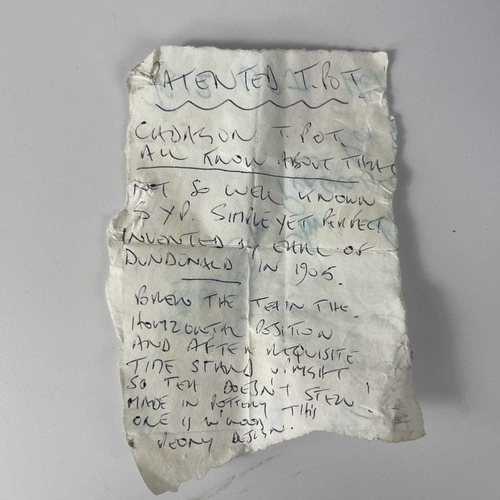 PATENTED T.POT.
CADOGAN T. POT.
ALL KNOW ABOUT THAT
NOT SO WELL KNOWN
S.Y.P. SIMPLE YET PERFECT
INVENTED BY EARL OF
DUNDONALD IN 1905.
BREW THE TEA IN THE
HORIZONTAL POSITION
AND AFTER REQUISITE
TIME STAND UPRIGHT
SO TEA DOESN'T STEW!
MADE IN POTTERY THIS
ONE IS IN
PEONY DESIGN.